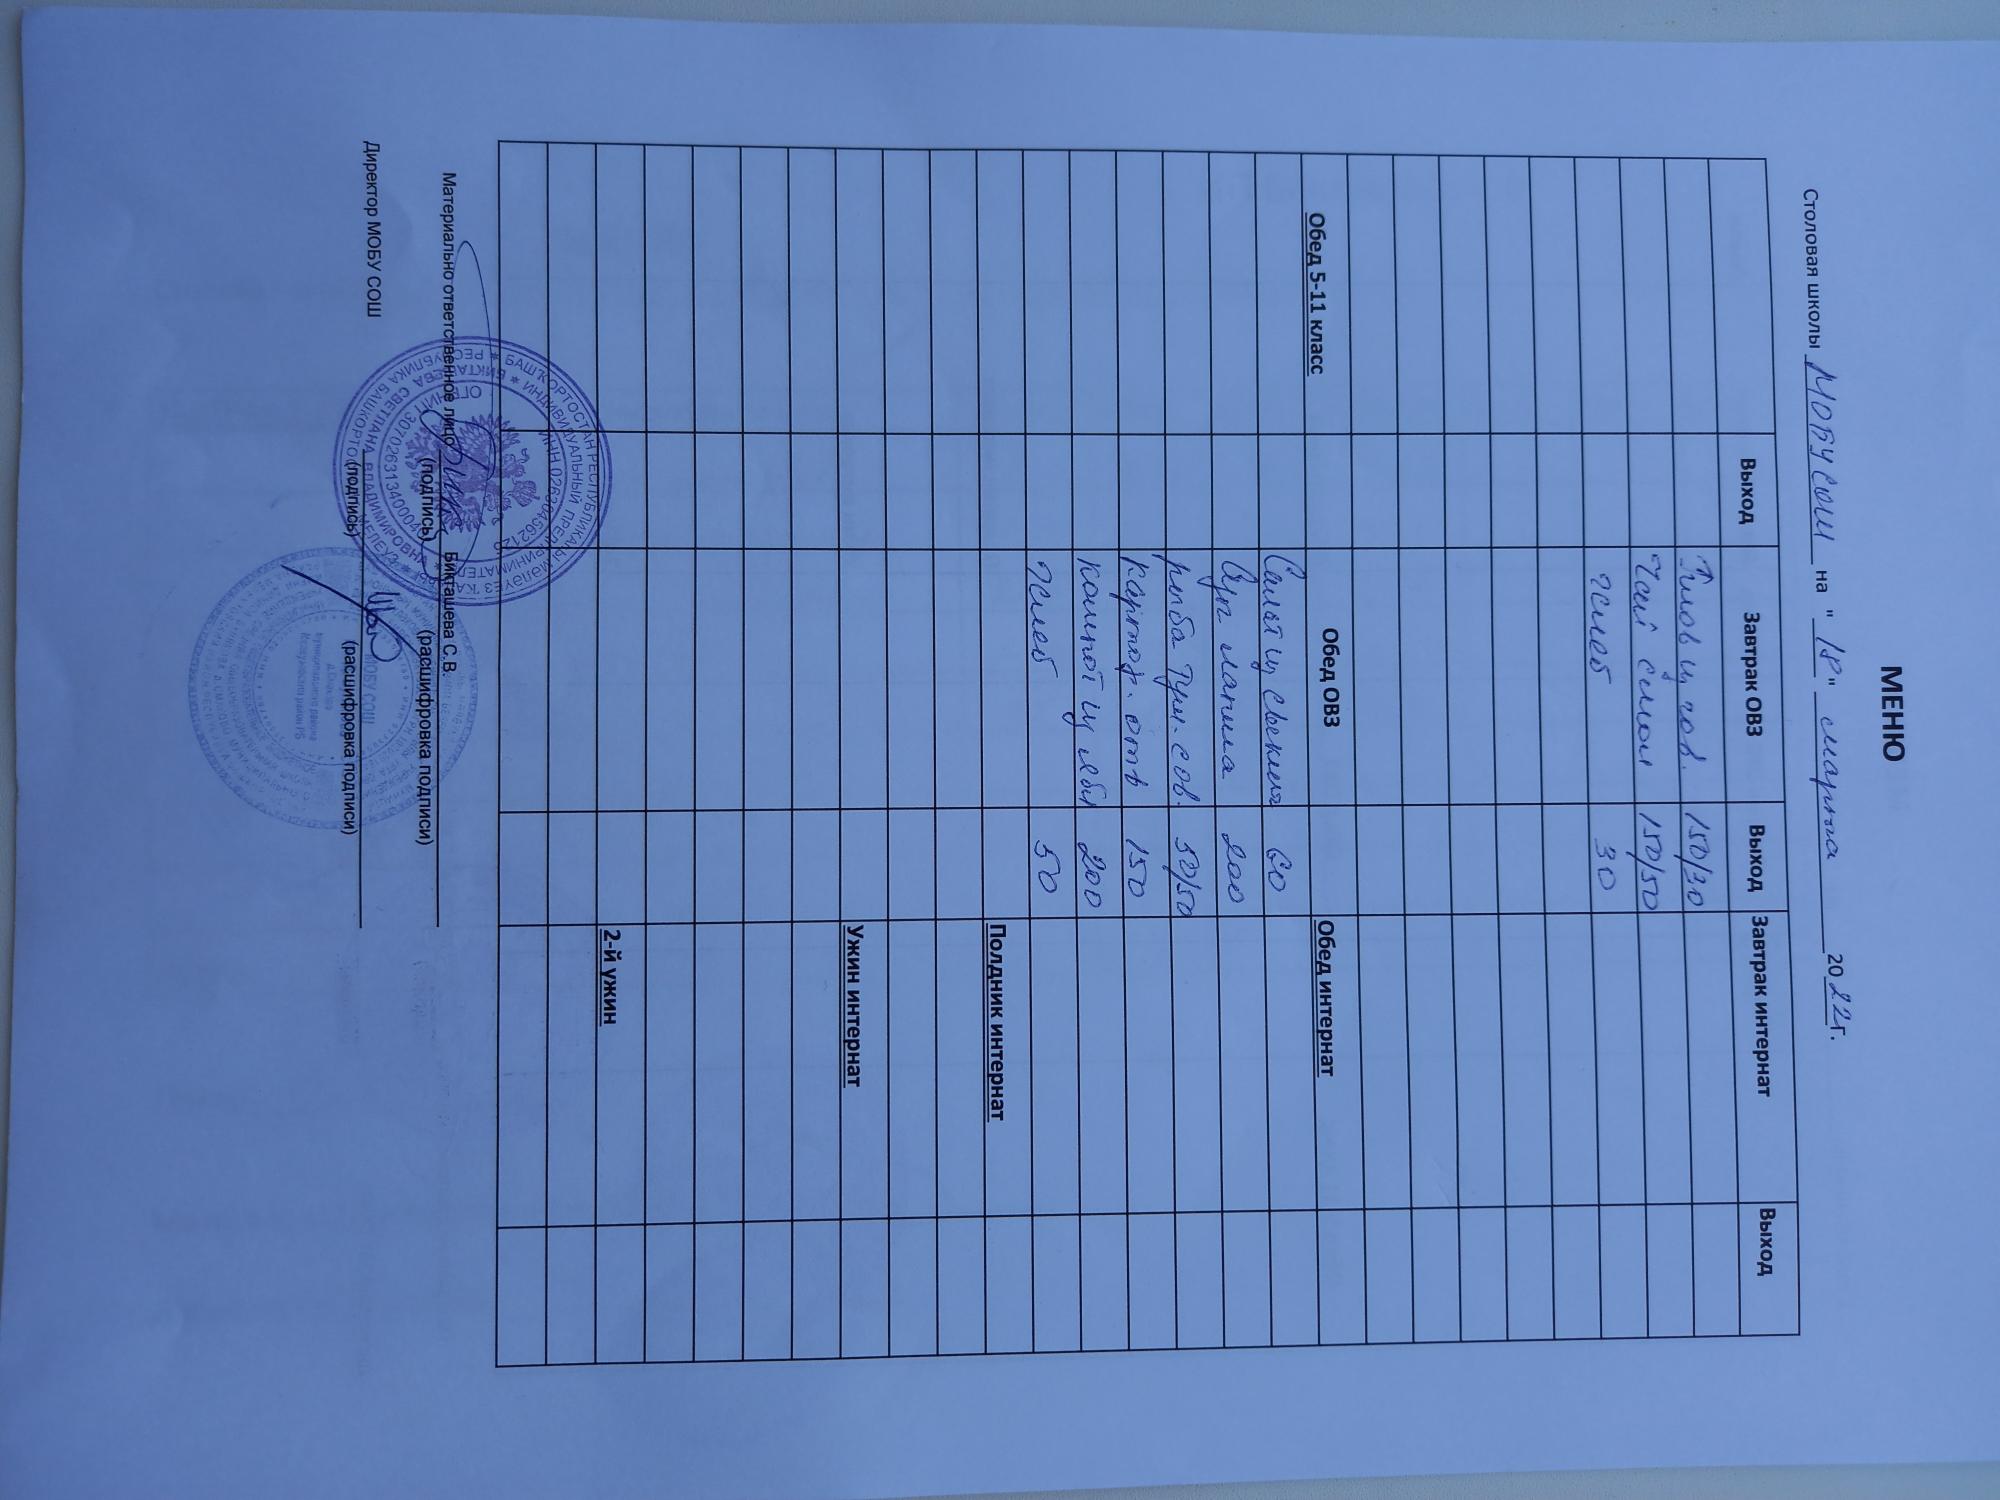 МЕНЮ
Столовая школы МОБУ СОШ на "18" марта 2022г.
Выход Завтрак ОВЗ Выход Завтрак интернат Выход
Плов из гов. 150/30
Чай слим 150/50
Хлеб 30
Обед 5-11 класс Обед ОВЗ Обед интернат
Салат из свеклы 60
Суп лапша 200
рыба Туш. с ов. 50/50
Картоф. отв 150
Компот из ябл 200
Хлеб 50
Полдник интернат
Ужин интернат
2-й ужин
Материально ответственное лицо Бикташева С.В.
(подпись) (расшифровка подписи)
Директор МОБУ СОШ
(подпись) (расшифровка подписи)
БАШҠОРТОСТАН РЕСПУБЛИКАҺЫ
РЕСПУБЛИКА БАШКОРТОСТАН
ИНДИВИДУАЛЬНЫЙ ПРЕДПРИНИМАТЕЛЬ
БИКТАШЕВА СВЕТЛАНА ВЛАДИМИРОВНА
ИНН 026304562126
МОБУ СОШ